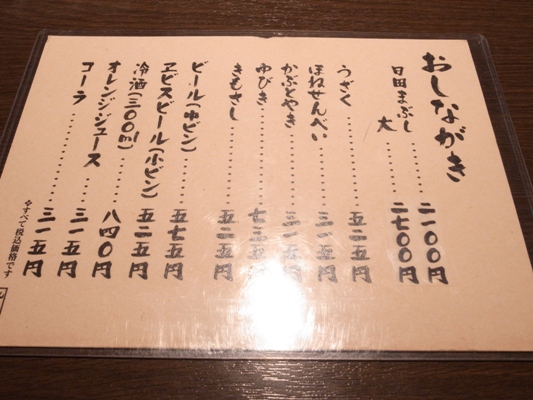 おしながき
日田まぶし……二一〇〇円
大……二七〇〇円
うざく……五二五円
ほねせんべい……三一五円
かぶとやき……三一五円
ゆびき……七三五円
きもさし……五二五円
ビール(中ビン)……五七五円
ヱビスビール(小ビン)……五二五円
冷酒(三〇〇ml)……八四〇円
オレンジジュース……三一五円
コーラ……三一五円
※すべて税込価格です